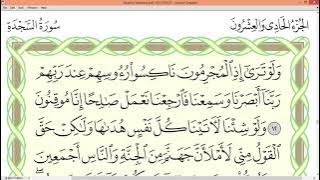 الجزء الحادي والعشرون سورة السجدة
وَلَوْ تَرَىٰ إِذِ الْمُجْرِمُونَ نَاكِسُوا رُءُوسِهِمْ عِندَ رَبِّهِمْ
رَبَّنَا أَبْصَرْنَا وَسَمِعْنَا فَارْجِعْنَا نَعْمَلْ صَالِحًا إِنَّا مُوقِنُونَ
١٢ وَلَوْ شِئْنَا لَآتَيْنَا كُلَّ نَفْسٍ هُدَاهَا وَلَٰكِنْ حَقَّ
الْقَوْلُ مِنِّي لَأَمْلَأَنَّ جَهَنَّمَ مِنَ الْجِنَّةِ وَالنَّاسِ أَجْمَعِينَ